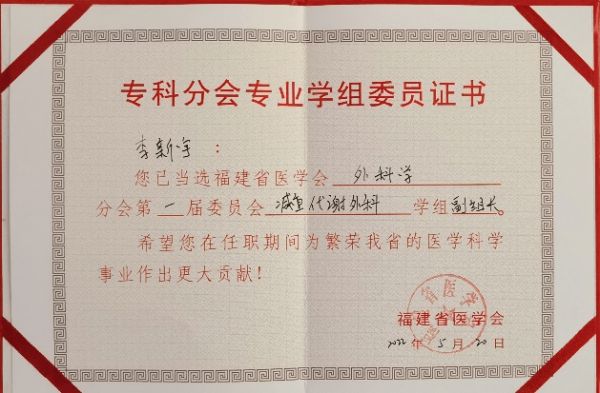 专科分会专业学组委员证书
李新宇：
您已当选福建省医学会 外科学
分会第 一 届委员会 减重代谢外科 学组副组长。
希望您在任职期间为繁荣我省的医学科学
事业作出更大贡献！
福建省医学会
2022年5月20日